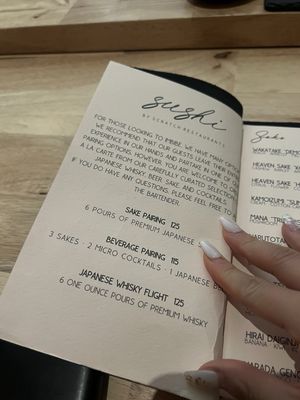 sushi
BY SCRATCH RESTAURANTS
FOR THOSE LOOKING TO IMBIBE, WE HAVE MANY OPTIONS.
WE RECOMMEND THAT OUR GUESTS LEAVE THEIR
EXPERIENCE IN OUR HANDS AND PARTAKE IN ONE OF OUR
PAIRING OPTIONS, HOWEVER, YOU ARE WELCOME TO ORDER
A LA CARTE FROM OUR CAREFULLY CURATED SELECTION
JAPANESE WHISKY, BEER, SAKE, AND COCKTAILS.
IF YOU DO HAVE ANY QUESTIONS, PLEASE FEEL FREE TO
THE BARTENDER.
SAKE PAIRING 125
6 POURS OF PREMIUM JAPANESE
BEVERAGE PAIRING 115
3 SAKES · 2 MICRO COCKTAILS · 1 JAPANESE
JAPANESE WHISKY FLIGHT 125
6 ONE OUNCE POURS OF PREMIUM WHISKY
Sake
WAKATAKE
HEAVEN SAKE
HEAVEN SAKE
KAMOIZUMI
MANA
HIRAI
BANANA